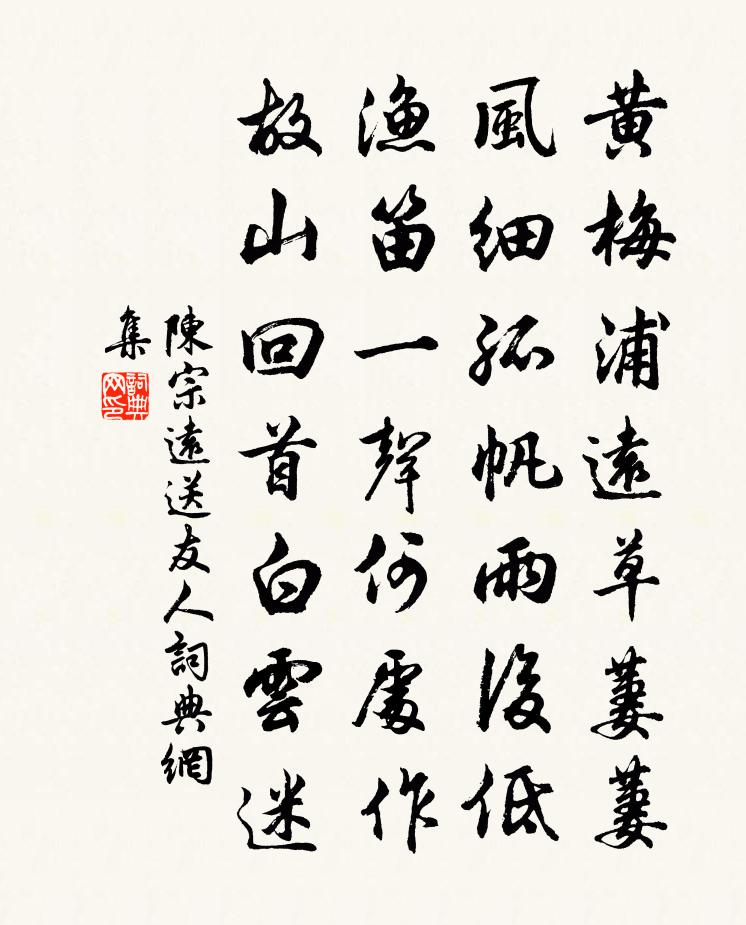 黄梅浦遠草萋萋
風細孤帆雨後低
漁笛一聲何處作
故山回首白雲迷
陳宗遠送友人詞典網
集
詞典
网印